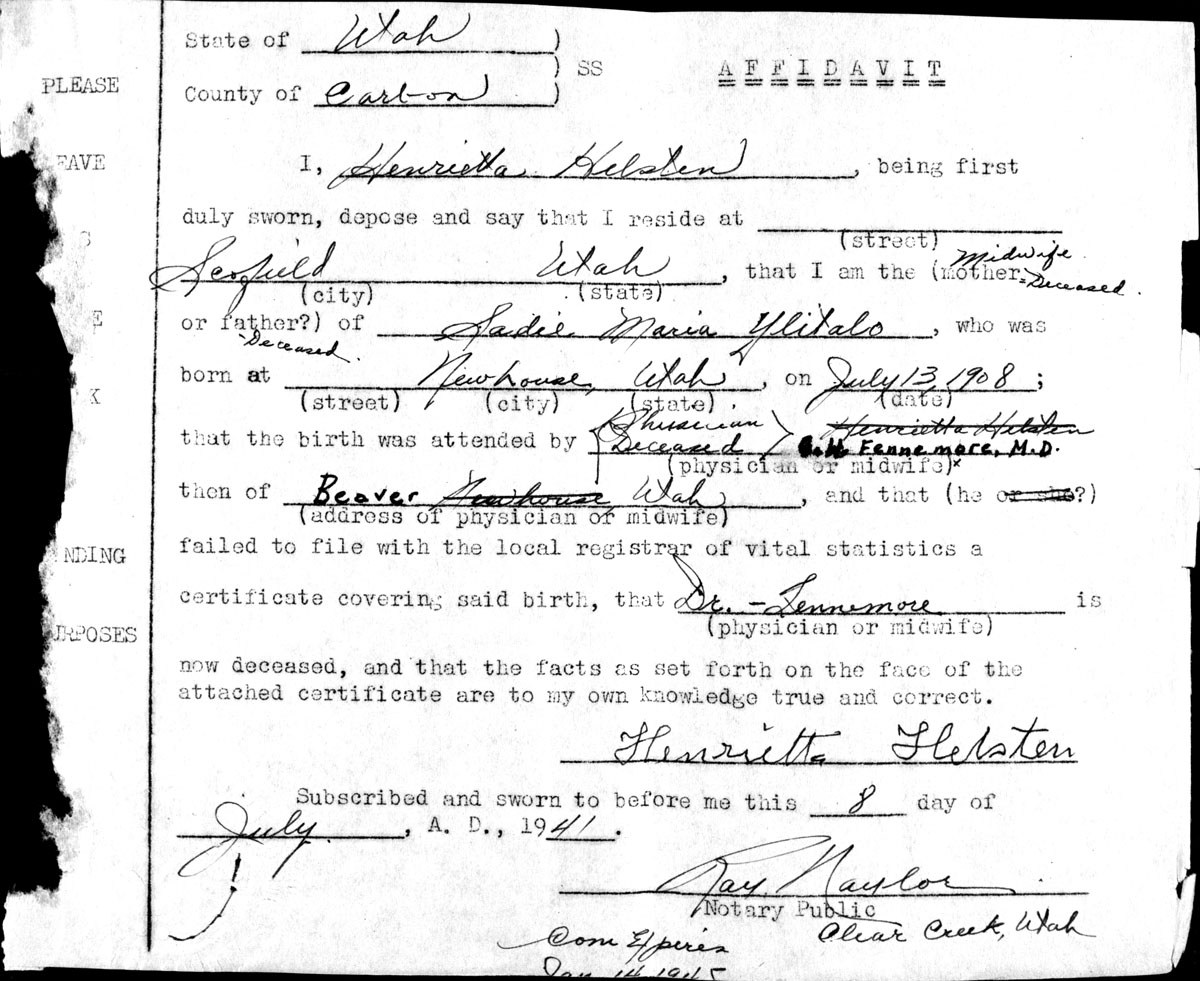 State of Utah )
) SS AFFIDAVIT
PLEASE
County of Carbon )
EAVE
I, Henrietta Helsten, being first
duly sworn, depose and say that I reside at
S
(street)
Midwife
Scofield Utah, that I am the (mother-Deceased.
(city) (state)
E
or father?) of Sadie Maria Ylitalo, who was
-Deceased.
born at Newhouse, Utah, on July 13, 1908;
K
(street) (city) (state) (date)
that the birth was attended by (Physician Deceased) Henrietta Helsten
Fennemore, M.D.
(physician or midwife)x
then of Beaver Newhouse Utah, and that (he or she?)
(address of physician or midwife)
failed to file with the local registrar of vital statistics a
NDING
certificate covering said birth, that Dr. - Fennemore is
(physician or midwife)
URPOSES
now deceased, and that the facts as set forth on the face of the
attached certificate are to my own knowledge true and correct.
Henrietta Helsten
Subscribed and sworn to before me this 8 day of
July, A. D., 1941.
Ray Naylor
Notary Public
Clear Creek, Utah
Com Expires
Jan 14 1945